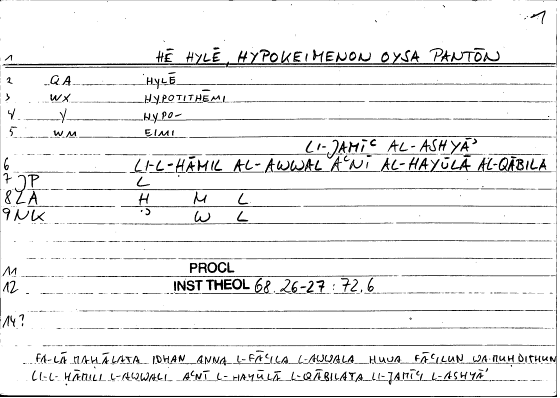 1
1 HĒ HYLĒ, HYPOKEIMENON OYSA PANTŌN
2 QA HYLĒ
3 WX HYPOTITHĒMI
4 Y HYPO-
5 WM EIMI
LI-JAMĪʿ AL-ASHYĀʾ
6 LI-L-HĀMIL AL-AWWAL AʿNĪ AL-HAYŪLĀ AL-QĀBILA
7 JP L
8 LA H M L
9 NK ʾ W L
11 PROCL
12 INST THEOL 68.26-27 : 72.6
14?
FA-LĀ MAHĀLATA IDHAN ANNA L-FĀʿILA L-AWWALA HUWA FĀʿILUN WA-MUHDITHUN
LI-L-HĀMILI L-AWWALI AʿNĪ L-HAYŪLĀ L-QĀBILATA LI-JAMĪʿ L-ASHYĀʾ